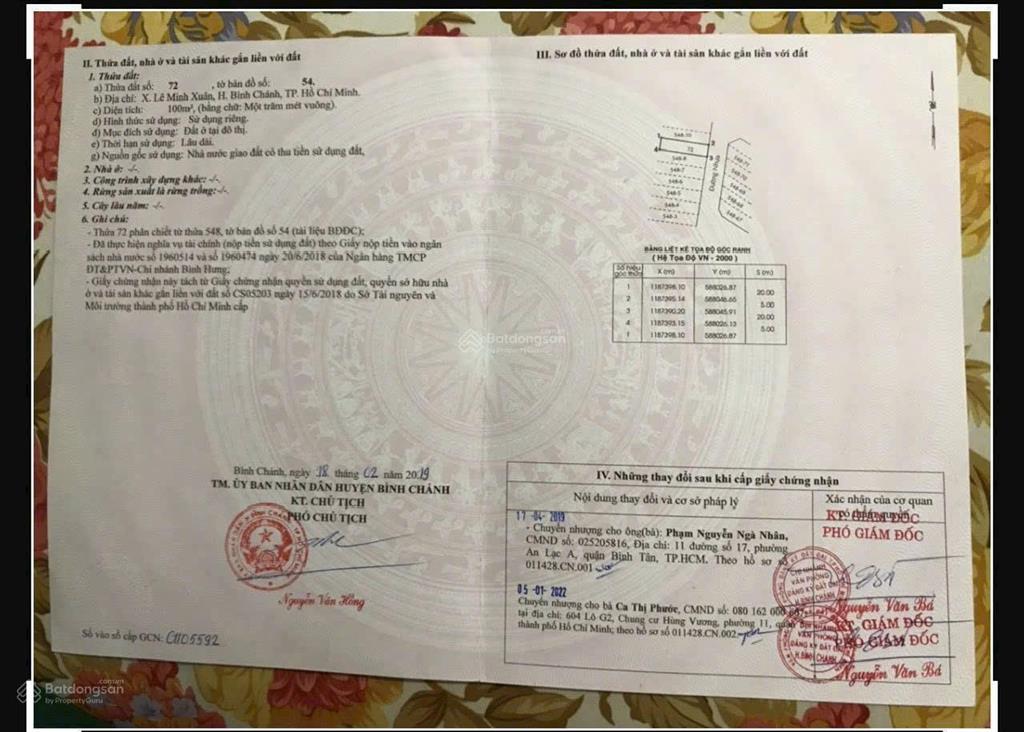 II. Thửa đất, nhà ở và tài sản khác gắn liền với đất
1. Thửa đất:
a) Thửa đất số: 72 , tờ bản đồ số: 54.
b) Địa chỉ: X. Lê Minh Xuân, H. Bình Chánh, TP. Hồ Chí Minh.
c) Diện tích: 100m², (bằng chữ: Một trăm mét vuông).
d) Hình thức sử dụng: Sử dụng riêng.
đ) Mục đích sử dụng: Đất ở tại đô thị.
e) Thời hạn sử dụng: Lâu dài.
g) Nguồn gốc sử dụng: Nhà nước giao đất có thu tiền sử dụng đất,
2. Nhà ở: -/-.
3. Công trình xây dựng khác: -/-.
4. Rừng sản xuất là rừng trồng:-/-.
5. Cây lâu năm: -/-.
6. Ghi chú:
- Thửa 72 phân chiết từ thửa 548, tờ bản đồ số 54 (tài liệu BĐĐC);
- Đã thực hiện nghĩa vụ tài chính (nộp tiền sử dụng đất) theo Giấy nộp tiền vào ngân
sách nhà nước số 1960514 và số 1960474 ngày 20/6/2018 của Ngân hàng TMCP
ĐT&PTVN-Chi nhánh Bình Hưng;
- Giấy chứng nhận này tách từ Giấy chứng nhận quyền sử dụng đất, quyền sở hữu nhà
ở và tài sản khác gắn liền với đất số CS05203 ngày 15/6/2018 do Sở Tài nguyên và
Môi trường thành phố Hồ Chí Minh cấp
Bình Chánh, ngày 18 tháng 02 năm 2019
TM. ỦY BAN NHÂN DÂN HUYỆN BÌNH CHÁNH
KT. CHỦ TỊCH
PHÓ CHỦ TỊCH
Nguyễn Văn Hồng
Số vào sổ cấp GCN: CH05592
III. Sơ đồ thửa đất, nhà ở và tài sản khác gắn liền với đất
548-10
72
548-8
548-7
548-6
548-5
548-4
548-3
Đường nhựa
548-71
548-70
548-69
548-68
548-67
BẢNG LIỆT KÊ TỌA ĐỘ GÓC RANH
( Hệ Tọa Độ VN - 2000 )
Số hiệu góc thửa X (m) Y (m) S (m)
1 1187398.10 588026.87
20.00
2 1187395.14 588046.65
5.00
3 1187390.20 588045.91
20.00
4 1187393.15 588026.13
5.00
1 1187398.10 588026.87
IV. Những thay đổi sau khi cấp giấy chứng nhận
Nội dung thay đổi và cơ sở pháp lý
Xác nhận của cơ quan
có thẩm quyền
17 -04- 2019
- Chuyển nhượng cho ông(bà): Phạm Nguyễn Ngà Nhân,
CMND số: 025205816, Địa chỉ: 11 đường số 17, phường
An Lạc A, quận Bình Tân, TP.HCM. Theo hồ sơ số
011428.CN.001
KT. GIÁM ĐỐC
PHÓ GIÁM ĐỐC
CHI NHÁNH
VĂN PHÒNG
ĐĂNG KÝ ĐẤT ĐAI
H.BÌNH CHÁNH
Nguyễn Văn Bá
05 -01- 2022
Chuyển nhượng cho bà Ca Thị Phước, CMND số: 080 162 000
tại địa chỉ: 604 Lô G2, Chung cư Hùng Vương, phường 11, quận
thành phố Hồ Chí Minh; theo hồ sơ số 011428.CN.002
KT. GIÁM ĐỐC
PHÓ GIÁM ĐỐC
CHI NHÁNH
VĂN PHÒNG
ĐĂNG KÝ ĐẤT ĐAI
H.BÌNH CHÁNH
Nguyễn Văn Bá
Batdongsan.com.vn
by PropertyGuru
Batdongsan.com.vn
by PropertyGuru